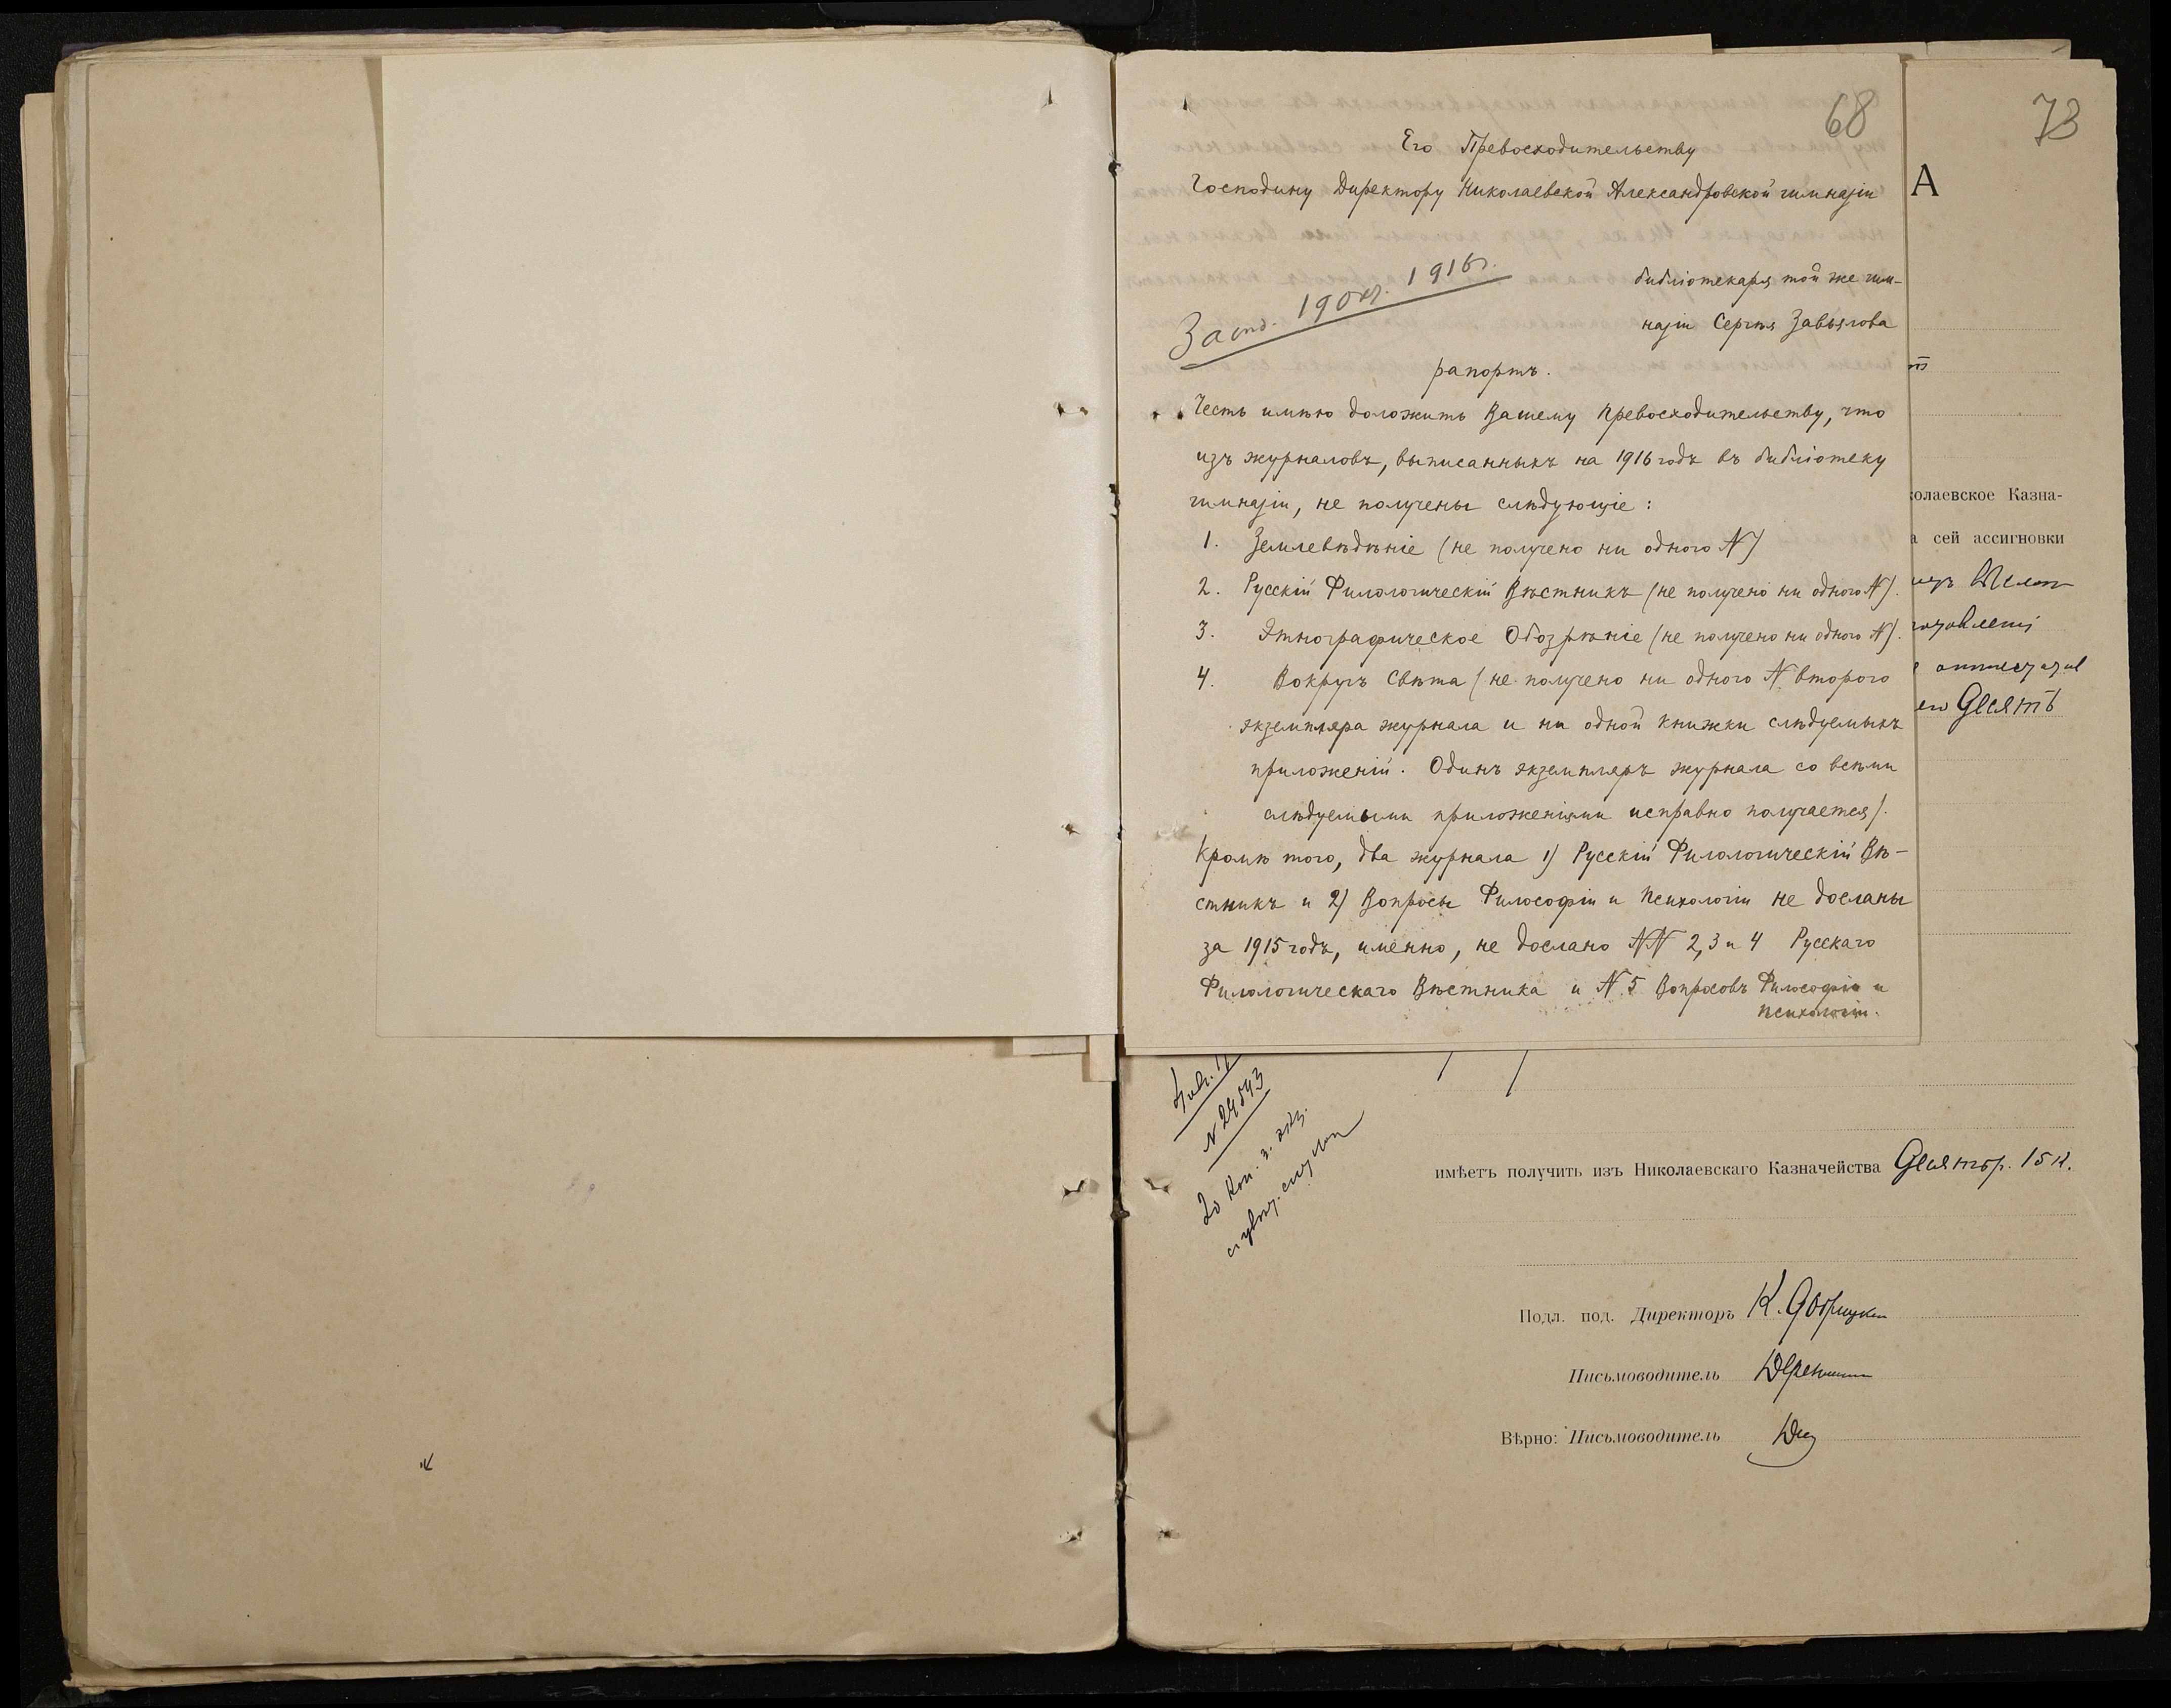 68
Его Превосходительству
Господину Директору Николаевской Александровской гимназіи
библіотекаря той же гим-
назіи Сергѣя Завьялова
190 1916г.
рапортъ.
Честь имѣю доложить Вашему Превосходительству, что
изъ журналовъ, выписанныхъ на 1916 годъ въ библіотеку
гимназіи, не получены слѣдующіе:
1. Землевѣдѣніе (не получено ни одного N)
2. Русскій Филологическій Вѣстникъ (не получено ни одного N).
3. Этнографическое Обозрѣніе (не получено ни одного N).
4. Вокругъ Свѣта (не получено ни одного N второго
экземпляра журнала и ни одной книжки слѣдуемыхъ
приложеній. Одинъ экземпляръ журнала со всѣми
слѣдуемыми приложеніями исправно получается).
Кромѣ того, два журнала 1) Русскій Филологическій Вѣ-
стникъ и 2) Вопросы Философіи и Психологіи не досланы
за 1915 годъ, именно, не дослано NN 2, 3 и 4 Русскаго
Филологическаго Вѣстника и N 5 Вопросовъ Философіи и
Психологіи.
73
А
колаевское Казна-
а сей ассигновки
его Десять
N 24543
20 коп.
имѣетъ получить изъ Николаевскаго Казначейства Десять р. 15 к.
Подл. под. Директоръ К.
Письмоводитель
Вѣрно: Письмоводитель